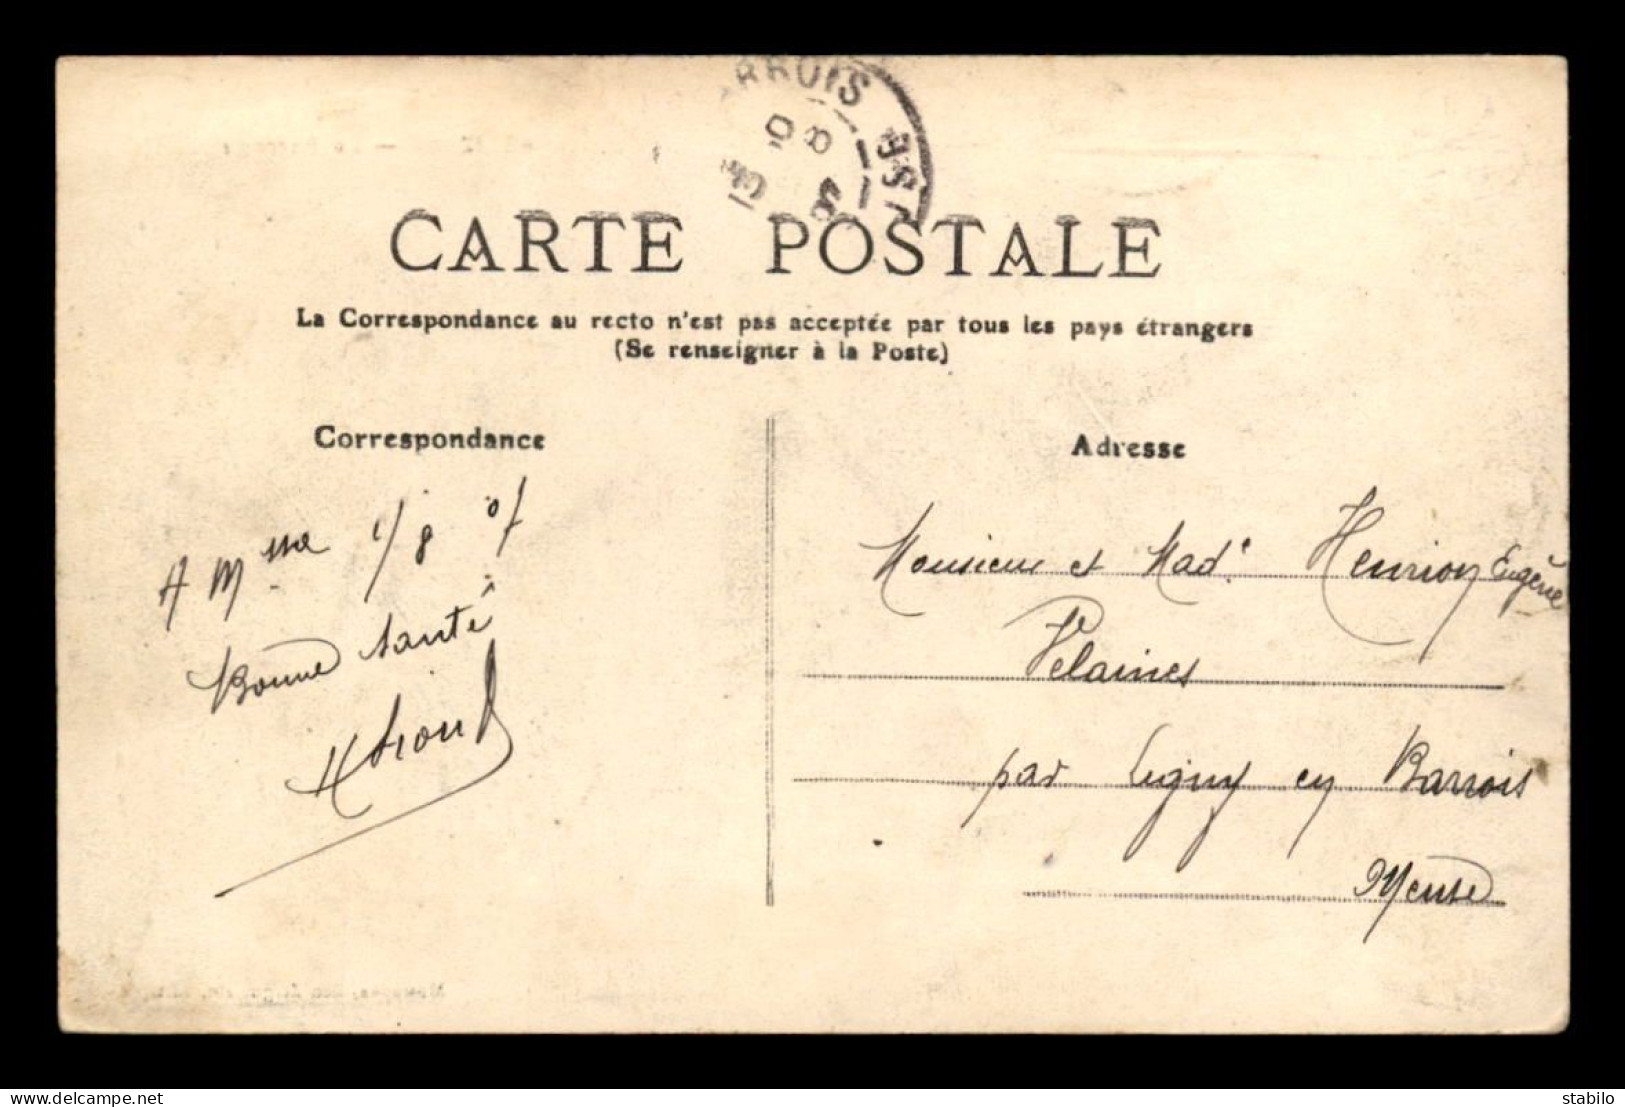 RROIS
8
CARTE POSTALE
La Correspondance au recto n'est pas acceptée par tous les pays étrangers
(Se renseigner à la Poste)
Correspondance
Adresse
A M 1/8 07
Bonne Santé
Monsieur et Mad.e Henrion Eugène
Velaines
par Ligny en Barrois
Meuse
www.delcampe.net
stabilo